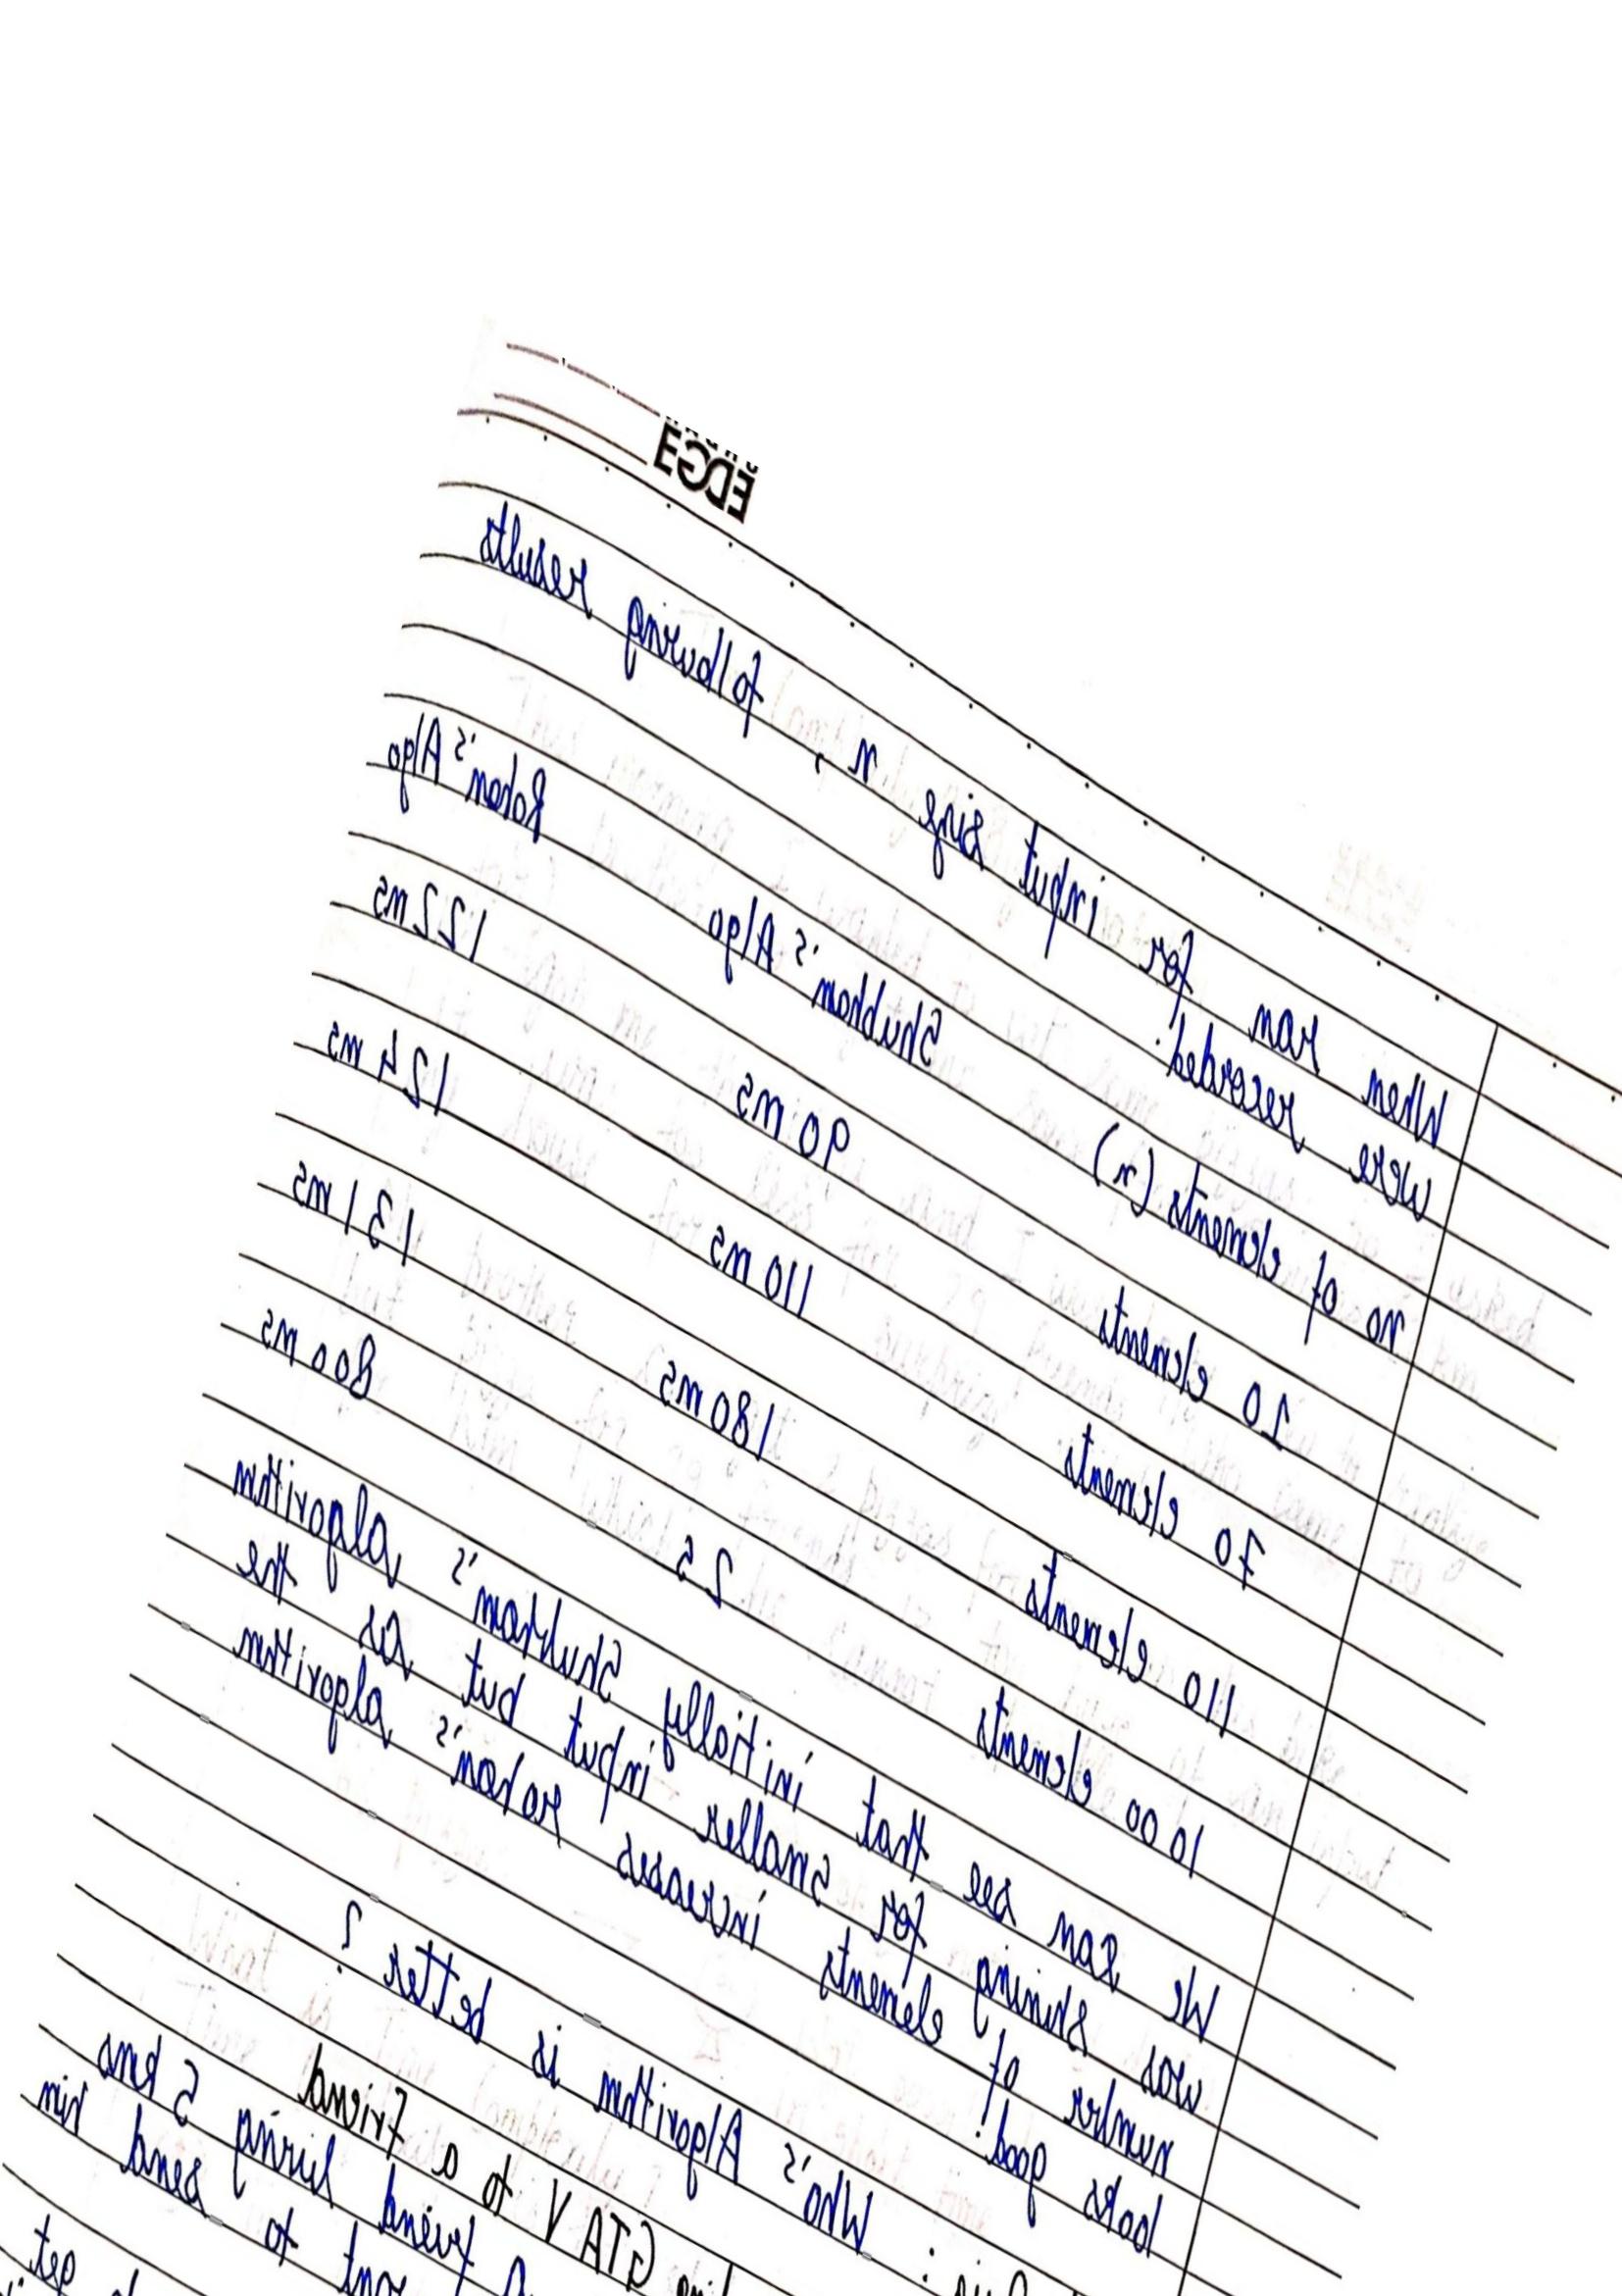 EDGE
When ran for input size n, following results
were recorded:
no of elements (n) Shubham's Algo Rohan's Algo
10 elements 90 ms 122 ms
70 elements 110 ms 124 ms
110 elements 180 ms 131 ms
1000 elements 2s 800 ms
We can see that initially Shubham's algorithm
was shining for smaller input but as the
number of elements increases rohan's algorithm
looks good!
Quiz: Who's Algorithm is better?
GTA V to a friend
friend living 5 kms
to send him
get